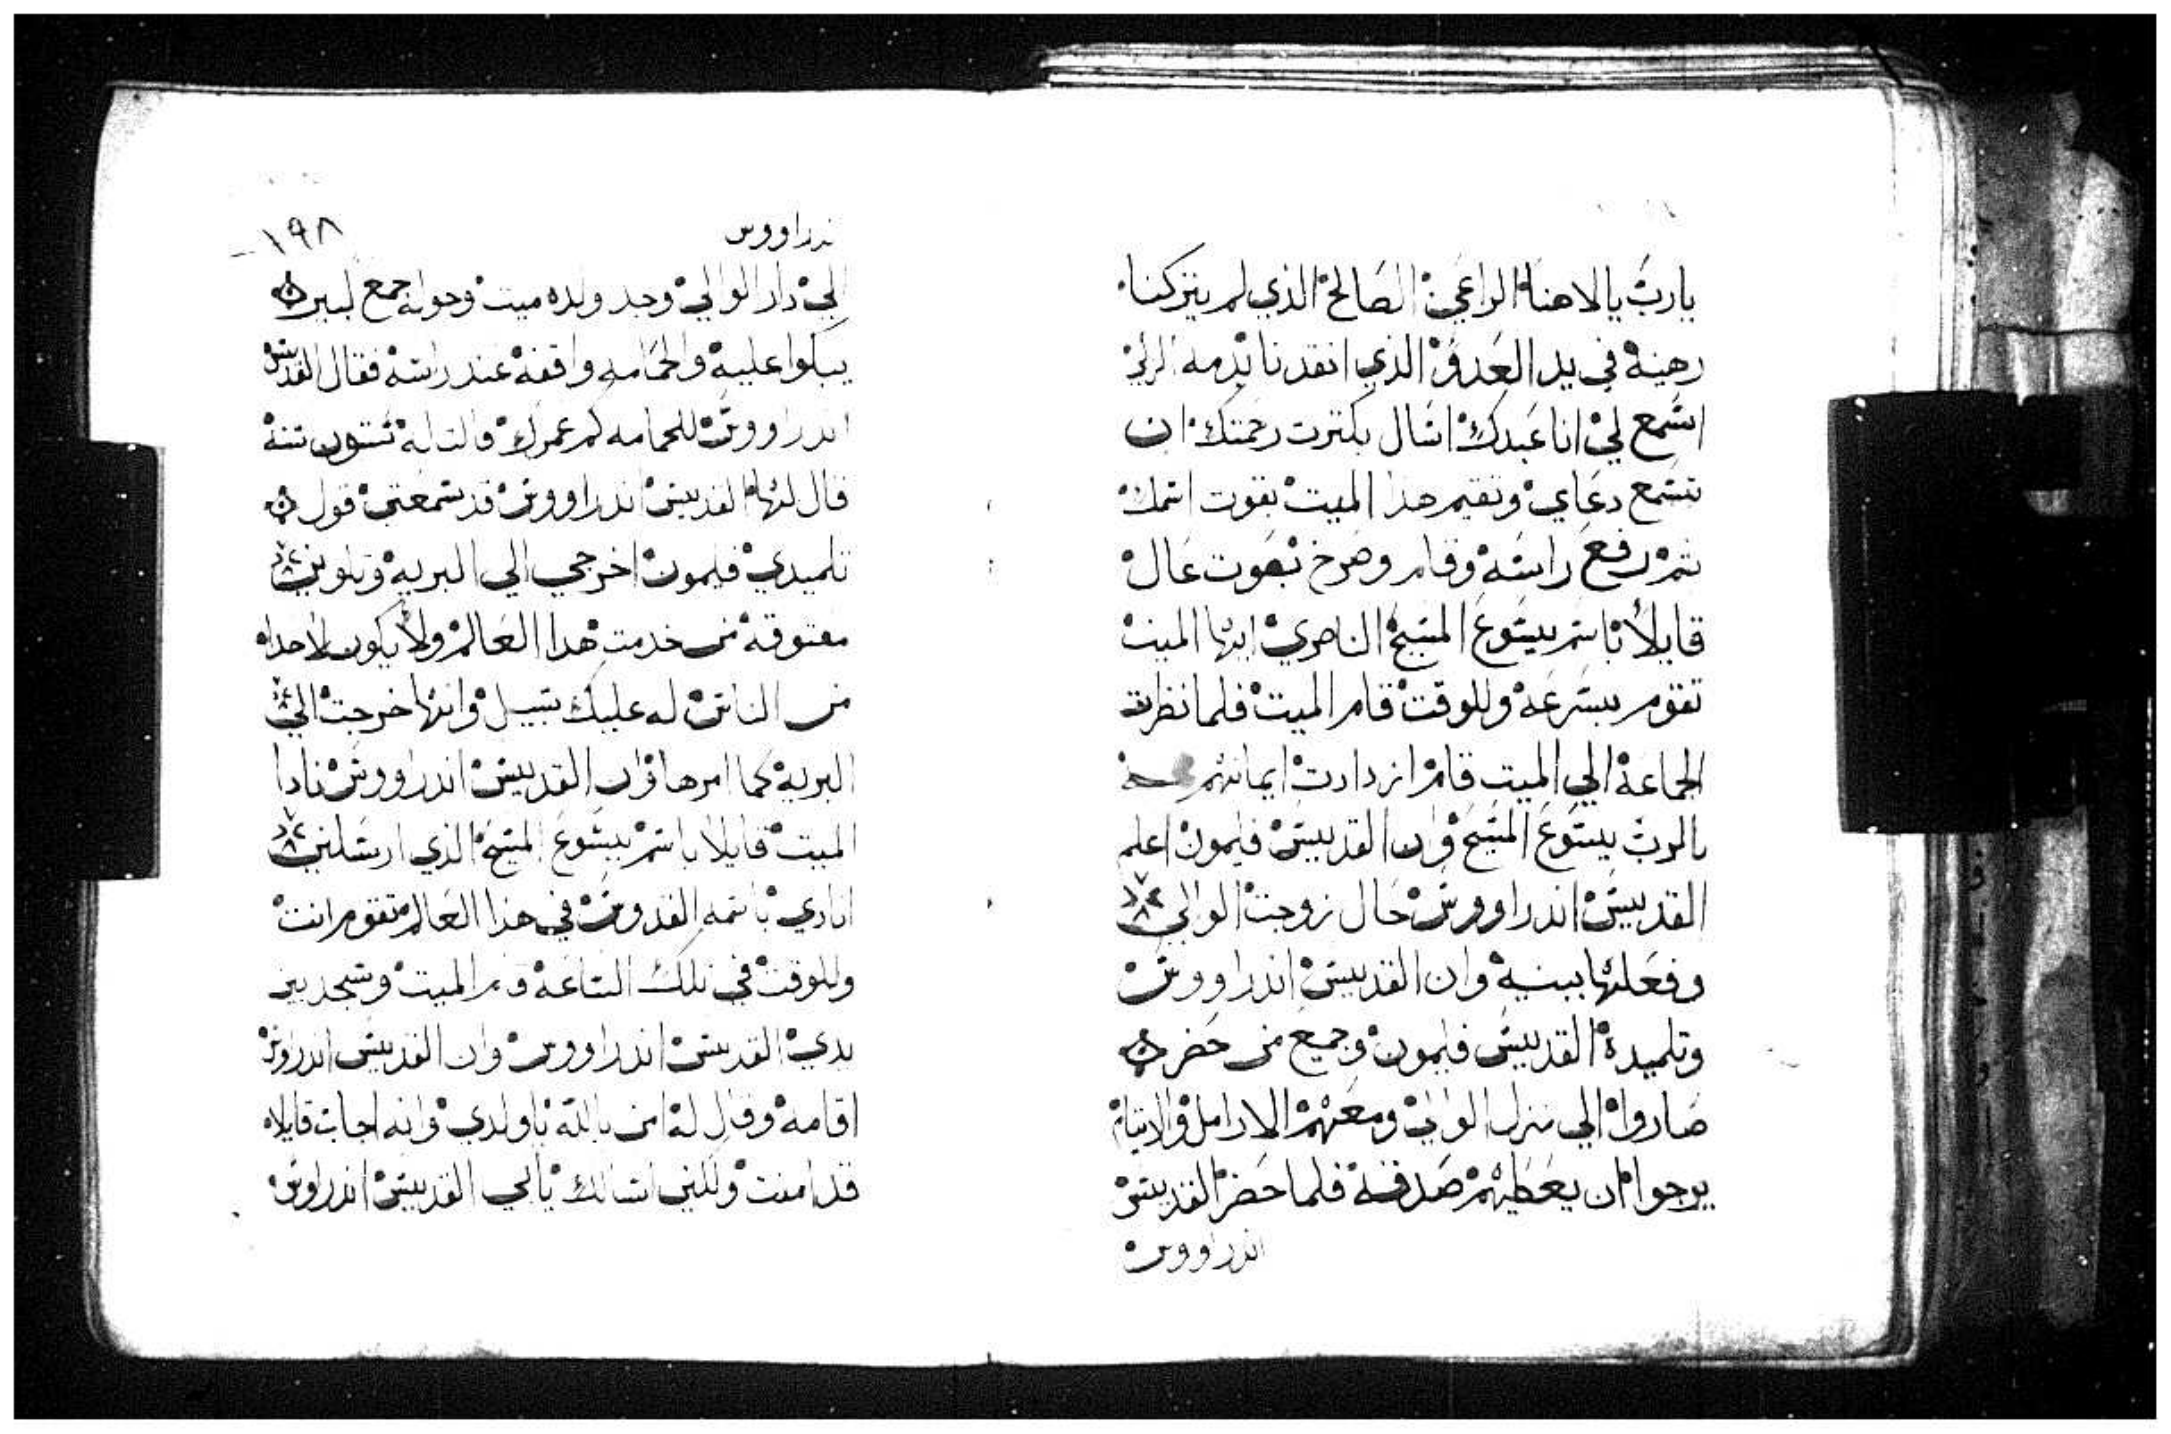 يارب يا الاهنا الراعي الصالح الذي لم يتركنا
رهينه في يد العدو الذي انقدنا بدمه الزكي
اسمع لي انا عبدك اسال بكترت رحمتك ان
تسمع دعاي وتقيم هذا الميت بقوت اسمك
تم رفع راسه وقام وصرخ بصوت عال
قايلاً باسم يسوع المسيح الناصري ايها الميت
تقوم بسرعه وللوقت قام الميت فلما نظرت
الجماعه الي الميت قام ازدادت ايمانهم
بالرب يسوع المسيح وان القديس فليمون اعلم
القديس اندراووس حال زوجت الوالي
وفعلها ببنيه وان القديس اندراووس
وتلميده القديس فليمون وجميع من حضر
صاروا الي منزل الوالي ومعهم الارامل والايتام
يرجوا ان يعطيهم صدقه فلما حضر القديس
اندراووس
ندراووس
١٩٨
الي دار الوالي وجد ولده ميت وحوله جمع كبير
يبكوا عليه والحمامه واقفه عند راسه فقال القديس
اندراووس للحمامه كم عمرك قالت له ستون سنه
قال لها القديس اندراووس قد سمعتي قول
تلميدي فليمون اخرجي الي البريه وتكوني
معتوقه من خدمت هدا العالم ولا يكون لاحدا
من الناس له عليك سبيل وانها خرجت الي
البريه كما امرها وان القديس اندراووس نادا
الميت قايلا باسم يسوع المسيح الذي ارسلني
انادي باسمه القدوس في هذا العالم تقوم انت
وللوقت في تلك الساعه قام الميت وسجد بين
يدي القديس اندراووس وان القديس اندراوس
اقامه وقال له امن بالله ياولدي وانه اجاب قايلا
قد امنت ولكني اسالك يا ابي القديس اندراوس